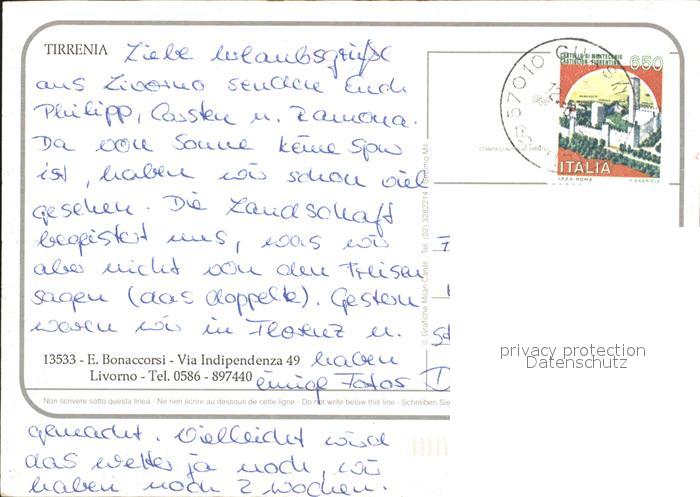 TIRRENIA
Liebe Urlaubsgrüße
aus Livorno senden Euch
Philipp, Carsten u. Ramona.
Da von Sonne keine Spur
ist, haben wir schon viel
gesehen. Die Landschaft
begeistert uns, was wir
aber nicht von den Preisen
sagen (das doppelte). Gestern
waren wir in Florenz u.
haben
einige Fotos
gemacht. Vielleicht wird
das Wetter ja noch, wir
haben noch 2 Wochen.
13533 - E. Bonaccorsi - Via Indipendenza 49
Livorno - Tel. 0586 - 897440
Non scrivere sotto questa linea - Ne rien écrire au dessous de cette ligne - Do not write below this line - Schreiben Sie
© Grafiche Milan Cards - Tel. (02) 3282214 / Settimo Mil.
57010
CASTELLO DI MONTECCHIO
CASTIGLION FIORENTINO
650
ITALIA
I.P.Z.S. ROMA
privacy protection
Datenschutz